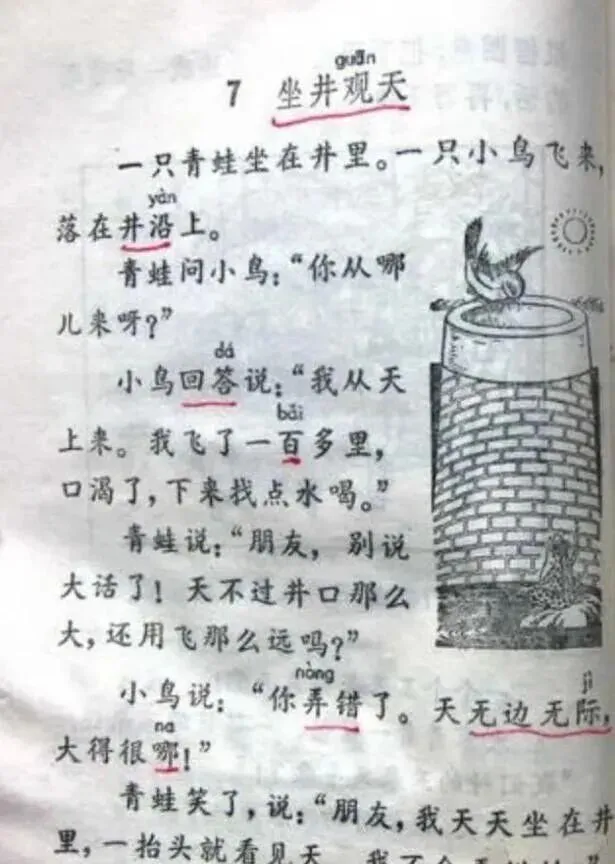 guān
7 坐井观天
一只青蛙坐在井里。一只小鸟飞来,
yán
落在井沿上。
青蛙问小鸟:“你从哪
儿来呀?”
dá
小鸟回答说:“我从天
bǎi
上来。我飞了一百多里,
口渴了,下来找点水喝。”
青蛙说:“朋友,别说
大话了!天不过井口那么
大,还用飞那么远吗?”
nòng jì
小鸟说:“你弄错了。天无边无际,
na
大得很哪!”
青蛙笑了,说:“朋友,我天天坐在井
里,一抬头就看见天。我不会